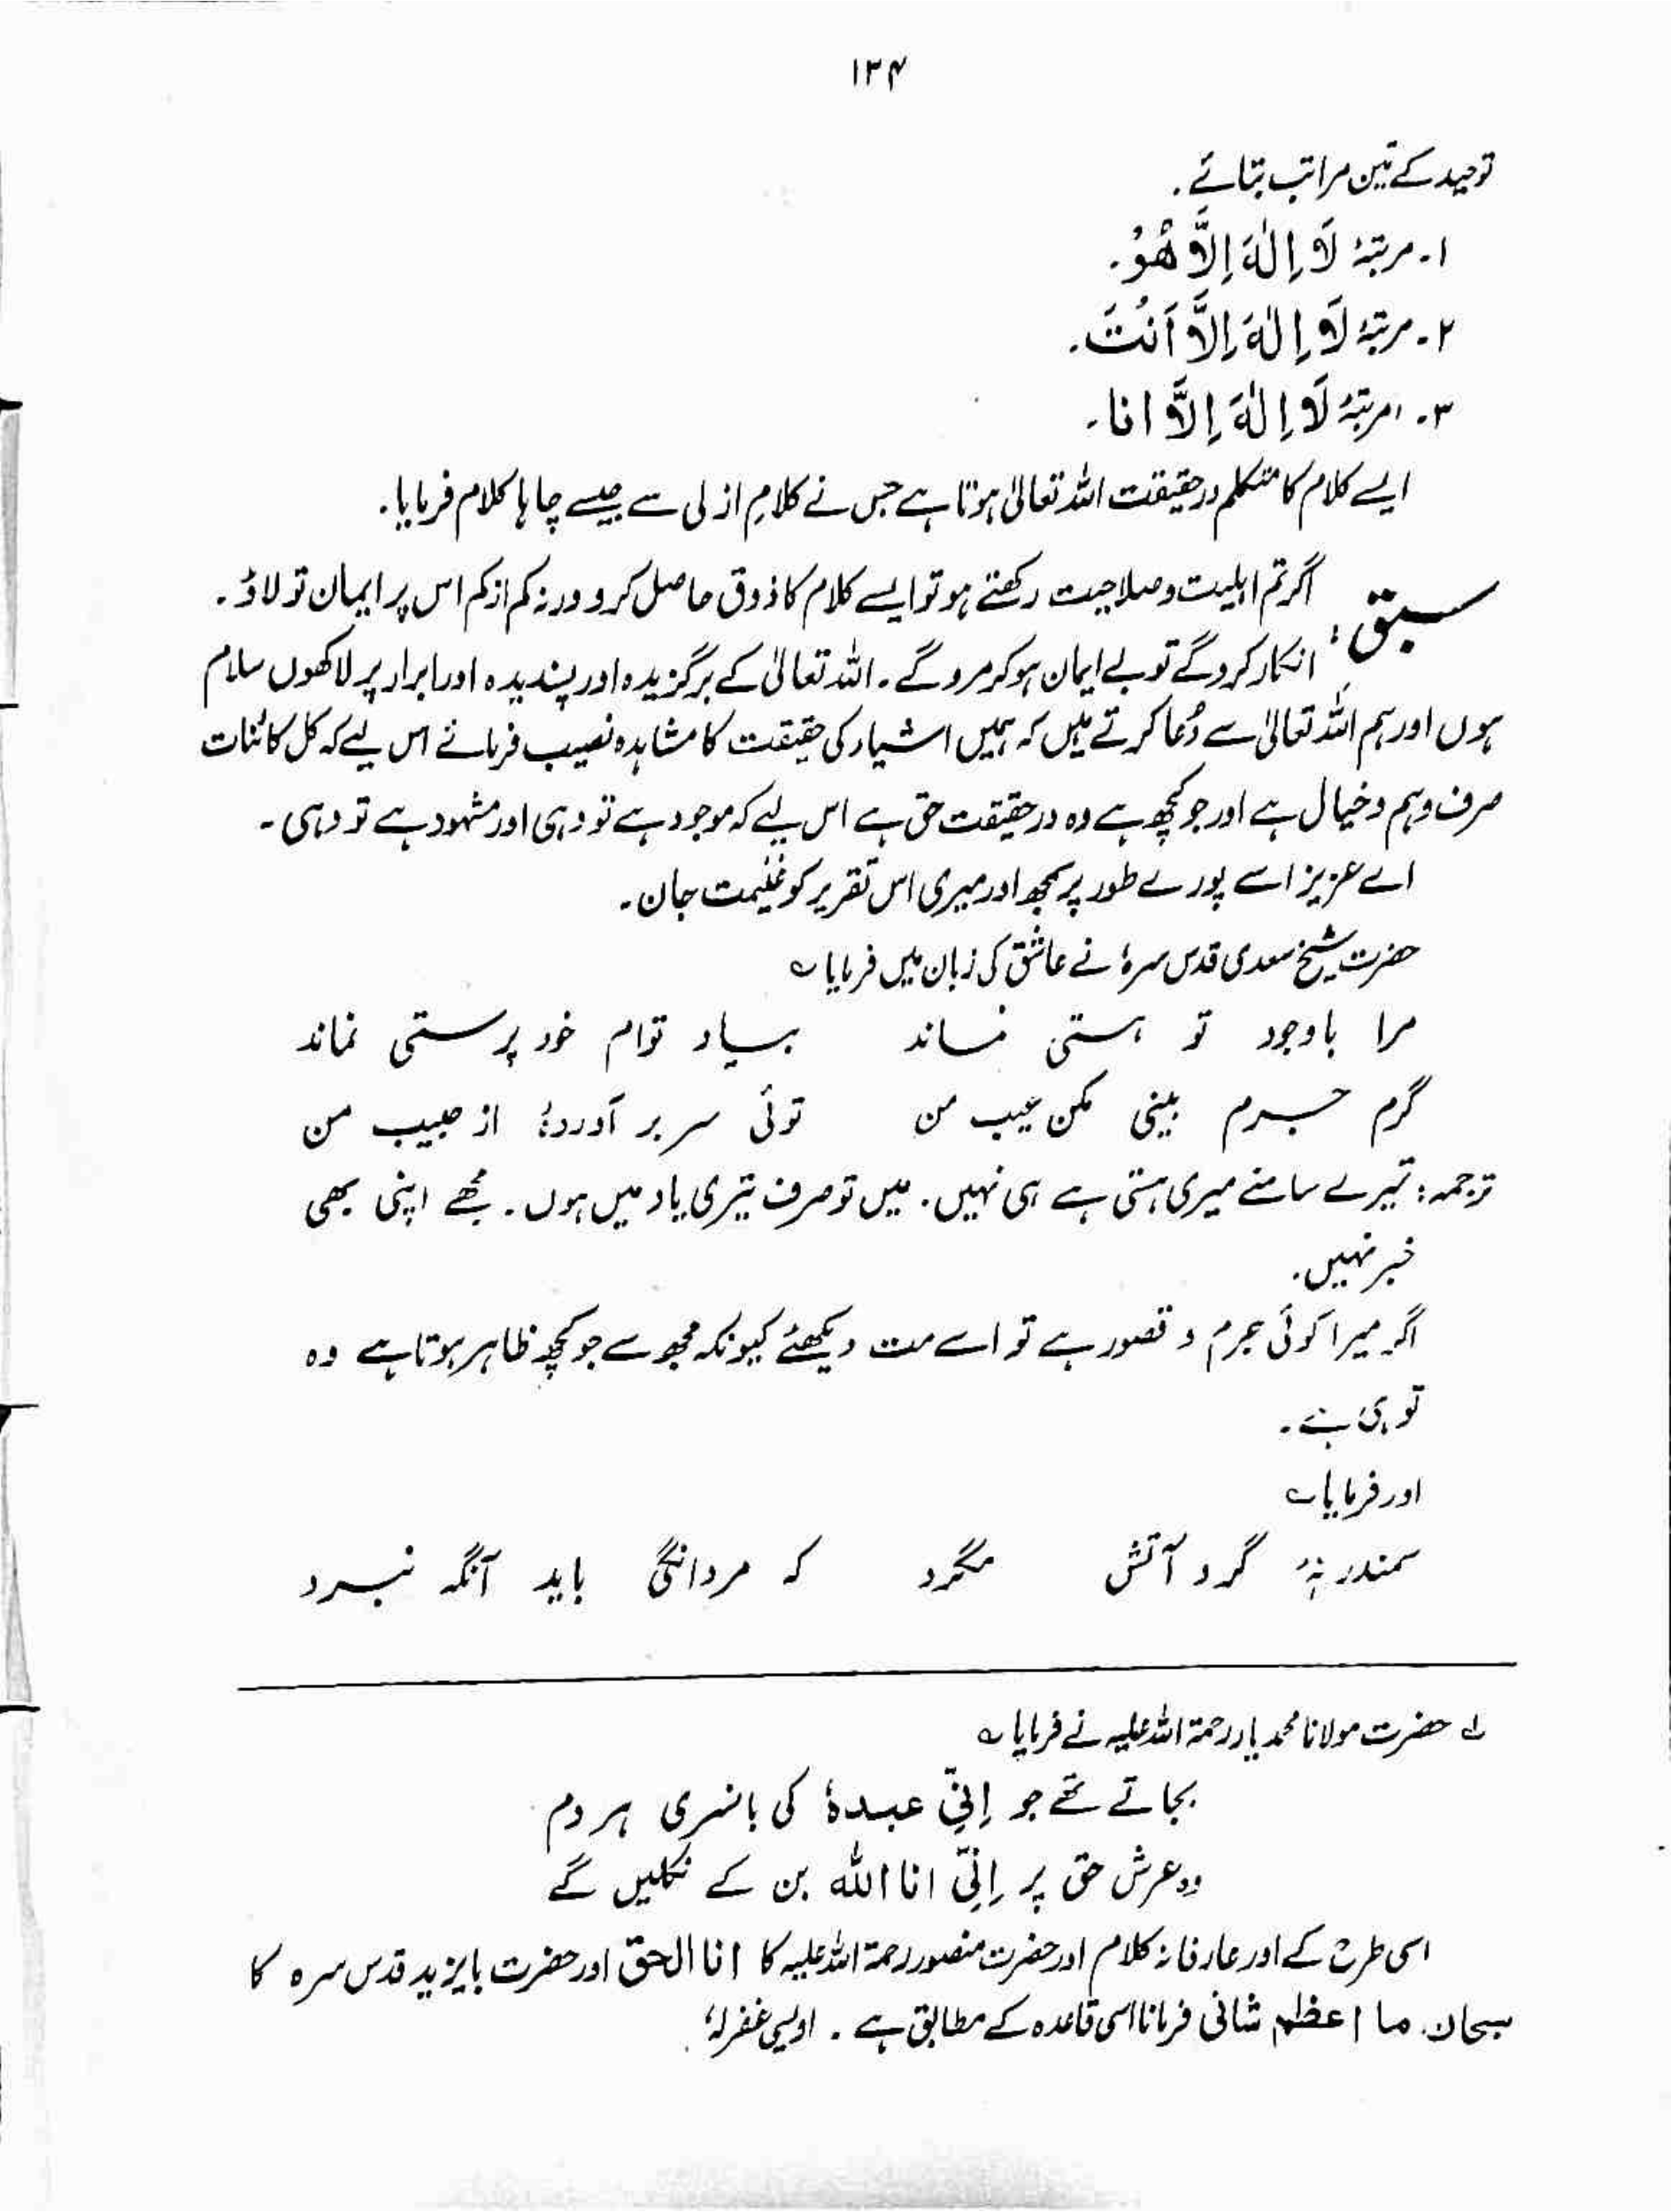 ۱۳۴
توحید کے تین مراتب بتائے ۔
۱۔ مرتبۂ لَا اِلٰهَ اِلَّا هُوْ۔
۲۔ مرتبۂ لَا اِلٰهَ اِلَّا اَنْتَ۔
۳۔ مرتبۂ لَا اِلٰهَ اِلَّا انا۔
ایسے کلام کا متکلم درحقیقت اللہ تعالیٰ ہوتا ہے جس نے کلامِ ازلی سے جیسے چاہا کلام فرمایا ۔
سبق : اگر تم اہلیت و صلاحیت رکھتے ہو تو ایسے کلام کا ذوق حاصل کرو ورنہ کم از کم اس پر ایمان تو لاؤ ۔
انکار کرو گے تو بے ایمان ہو کر مرو گے ۔ اللہ تعالیٰ کے برگزیدہ اور پسندیدہ اور ابرار پر لاکھوں سلام
ہوں اور ہم اللہ تعالیٰ سے دُعا کرتے ہیں کہ ہمیں اشیاء کی حقیقت کا مشاہدہ نصیب فرمائے اس لیے کہ کل کائنات
صرف وہم و خیال ہے اور جو کچھ ہے وہ درحقیقت حق ہے اس لیے کہ موجود ہے تو وہی اور مشہود ہے تو وہی ۔
اے عزیز اسے پورے طور پر سمجھ اور میری اس تقریر کو غنیمت جان ۔
حضرت شیخ سعدی قدس سرہٗ نے عاشق کی زبان میں فرمایا ؎
مرا باوجود تو ہستی نماند بیاد توام خود پرستی نماند
گرم جرم بینی مکن عیب من توئی سر بر آوردۂ از جیب من
ترجمہ : تیرے سامنے میری ہستی ہے ہی نہیں ۔ میں تو صرف تیری یاد میں ہوں ۔ مجھے اپنی بھی
خبر نہیں ۔
اگر میرا کوئی جرم و قصور ہے تو اسے مت دیکھئے کیونکہ مجھ سے جو کچھ ظاہر ہوتا ہے وہ
تو ہی ہے ۔
اور فرمایا ؎
سمندر نۂ گرد آتش مگرد کہ مردانگی باید آنگہ نبرد
لے حضرت مولانا محمد یار رحمۃ اللہ علیہ نے فرمایا ؎
بجاتے تھے جو اِنِّیْ عبدہٗ کی بانسری ہر دم
وہ عرش حق پر اِنِّیْ انا اللہ بن کے نکلیں گے
اسی طرح کے اور عارفانہ کلام اور حضرت منصور رحمۃ اللہ علیہ کا انا الحق اور حضرت بایزید قدس سرہ کا
سبحان ما اعظم شانی فرمانا اسی قاعدہ کے مطابق ہے ۔ اویسی غفرلہٗ